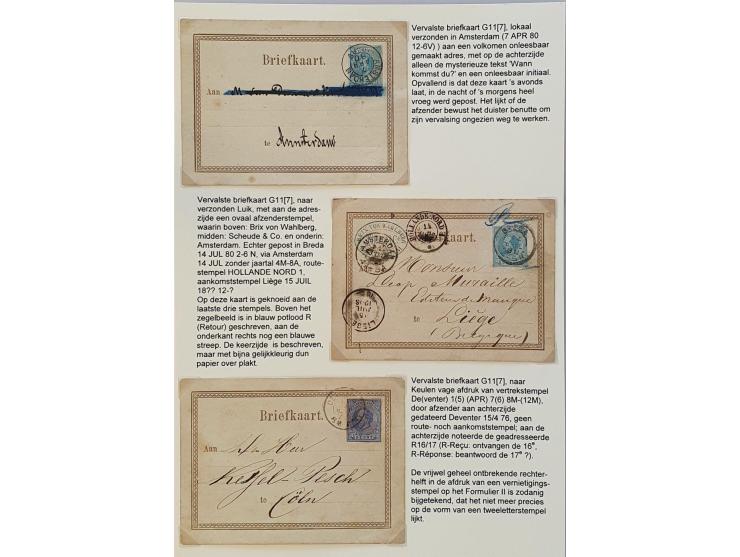 Vervalste briefkaart G11[7], lokaal
verzonden in Amsterdam (7 APR 80
12-6V) ) aan een volkomen onleesbaar
gemaakt adres, met op de achterzijde
alleen de mysterieuze tekst 'Wann
kommst du?' en een onleesbaar initiaal.
Opvallend is dat deze kaart 's avonds
laat, in de nacht of 's morgens heel
vroeg werd gepost. Het lijkt of de
afzender bewust het duister benutte om
zijn vervalsing ongezien weg te werken.
Briefkaart.
Aan
te Amsterdam
Vervalste briefkaart G11[7], naar
verzonden Luik, met aan de adres-
zijde een ovaal afzenderstempel,
waarin boven: Brix von Wahlberg,
midden: Scheude & Co. en onderin;
Amsterdam. Echter gepost in Breda
14 JUL 80 2-6 N, via Amsterdam
14 JUL zonder jaartal 4M-8A, route-
stempel HOLLANDE NORD 1,
aankomststempel Liège 15 JUIL
18?? 12-?
Op deze kaart is geknoeid aan de
laatste drie stempels. Boven het
zegelbeeld is in blauw potlood R
(Retour) geschreven, aan de
onderkant rechts nog een blauwe
streep. De keerzijde is beschreven,
maar met bijna gelijkkleurig dun
papier over plakt.
HOLLANDE-NORD
AMSTERDAM
BREDA
Briefkaart.
Aan Monsieur
Muraille
Editeur de musique
te Liège
(Belgique)
LIEGE
Vervalste briefkaart G11[7], naar
Keulen vage afdruk van vertrekstempel
De(venter) 1(5) (APR) 7(6) 8M-(12M),
door afzender aan achterzijde
gedateerd Deventer 15/4 76, geen
route- noch aankomststempel; aan de
achterzijde noteerde de geadresseerde
R16/17 (R-Reçu: ontvangen de 16e,
R-Réponse: beantwoord de 17e ?).
Briefkaart.
Aan
Kessel-Pesch
te Cöln
De vrijwel geheel ontbrekende rechter-
helft in de afdruk van een vernietigings-
stempel op het Formulier II is zodanig
bijgetekend, dat het niet meer precies
op de vorm van een tweeletterstempel
lijkt.